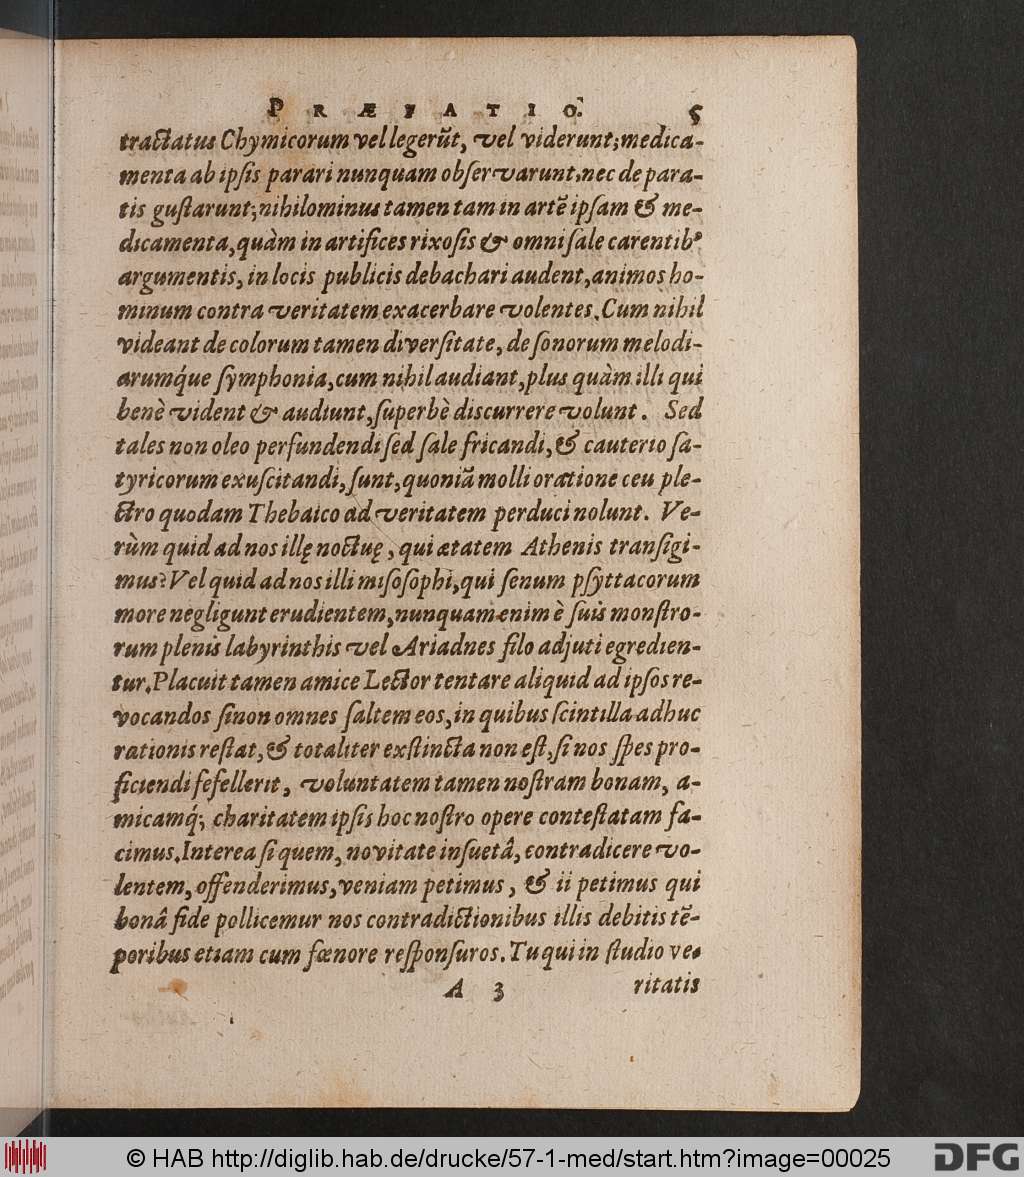 PRÆFATIO. 5
tractatus Chymicorum vel legerũt, vel viderunt; medica-
menta ab ipſis parari nunquam obſervarunt, nec de para-
tis guſtarunt; nihilominus tamen tam in artẽ ipſam & me-
dicamenta, quàm in artifices rixoſis & omni ſale carentibꝰ
argumentis, in locis publicis debachari audent, animos ho-
minum contra veritatem exacerbare volentes. Cum nihil
videant de colorum tamen diverſitate, de ſonorum melodi-
arumq́ue ſymphonia, cum nihil audiant, plus quàm illi qui
benè vident & audiunt, ſuperbè diſcurrere volunt. Sed
tales non oleo perfundendi ſed ſale fricandi, & cauterio ſa-
tyricorum exuſcitandi, ſunt, quoniã molli oratione ceu ple-
ctro quodam Thebaico ad veritatem perduci nolunt. Ve-
rùm quid ad nos illę noctuę, qui ætatem Athenis tranſigi-
mus? Vel quid ad nos illi miſoſophi, qui ſenum pſyttacorum
more negligunt erudientem, nunquam enim è ſuis monſtro-
rum plenis labyrinthis vel Ariadnes filo adjuti egredien-
tur. Placuit tamen amice Lector tentare aliquid ad ipſos re-
vocandos ſi non omnes ſaltem eos, in quibus ſcintilla adhuc
rationis reſtat, & totaliter exſtincta non eſt, ſi nos ſpes pro-
ficiendi fefellerit, voluntatem tamen noſtram bonam, a-
micamq́; charitatem ipſis hoc noſtro opere conteſtatam fa-
cimus. Interea ſi quem, novitate inſuetâ, contradicere vo-
lentem, offenderimus, veniam petimus, & ii petimus qui
bonâ fide pollicemur nos contradictionibus illis debitis tẽ-
poribus etiam cum fœnore reſponſuros. Tu qui in ſtudio ve-
A 3 ritatis
© HAB http://diglib.hab.de/drucke/57-1-med/start.htm?image=00025 DFG